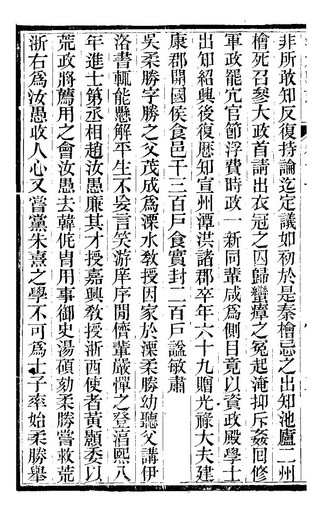 非所敢知反復持論迄定議如初於是秦檜忌之出知池廬二州
檜死召參大政首請出衣冠之囚歸蠻瘴之冤起淹抑斥姦回修
軍政罷宂官節浮費時政一新同輩咸為側目竟以資政殿學士
出知紹興後復歷知宣州潭洪諸郡卒年六十九贈光祿大夫建
康郡開國侯食邑千三百戶食實封二百戶諡敏肅
吳柔勝字勝之父茂成為溧水教授因家於溧柔勝幼聽父講伊
洛書輒能懸解平生不妄言笑游庠序閒儕輩嚴憚之登淳熙八
年進士第丞相趙汝愚廉其才授嘉興教授浙西使者黃顥委以
荒政將薦用之會汝愚去韓侂胄用事御史湯碩劾柔勝嘗救荒
浙右為汝愚收人心又嘗黨朱熹之學不可為士子率始柔勝舉